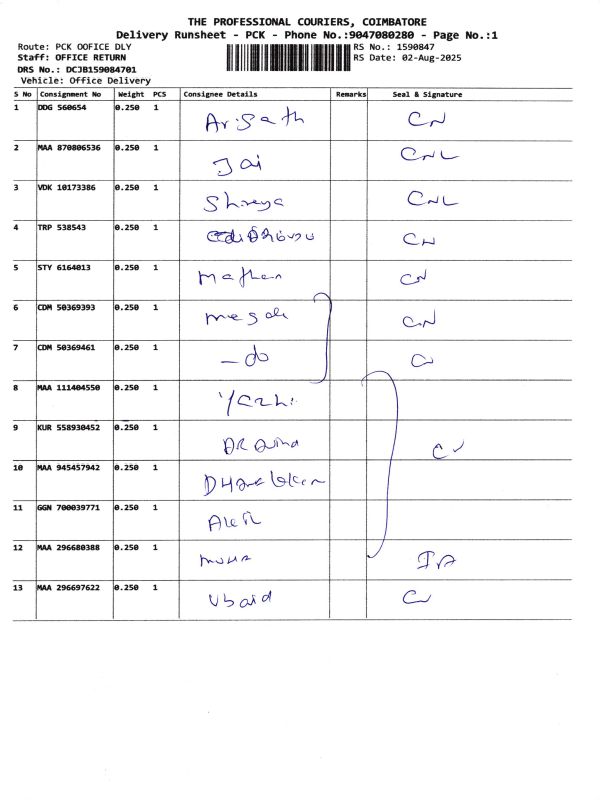 THE PROFESSIONAL COURIERS, COIMBATORE
Delivery Runsheet - PCK - Phone No.:9047080280 - Page No.:1
Route: PCK OOFICE DLY RS No.: 1590847
Staff: OFFICE RETURN RS Date: 02-Aug-2025
DRS No.: DCJB159084701
Vehicle: Office Delivery
S No Consignment No Weight PCS Consignee Details Remarks Seal & Signature
1 DDG 560654 0.250 1 CN
2 MAA 870806536 0.250 1 Jai CNL
3 VDK 10173386 0.250 1 Shreya CNL
4 TRP 538543 0.250 1 CN
5 STY 6164013 0.250 1 CN
6 CDM 50369393 0.250 1 CN
7 CDM 50369461 0.250 1 - do
8 MAA 111404550 0.250 1
9 KUR 558930452 0.250 1
10 MAA 945457942 0.250 1
11 GGN 700039771 0.250 1
12 MAA 296680388 0.250 1
13 MAA 296697622 0.250 1 Ubaid